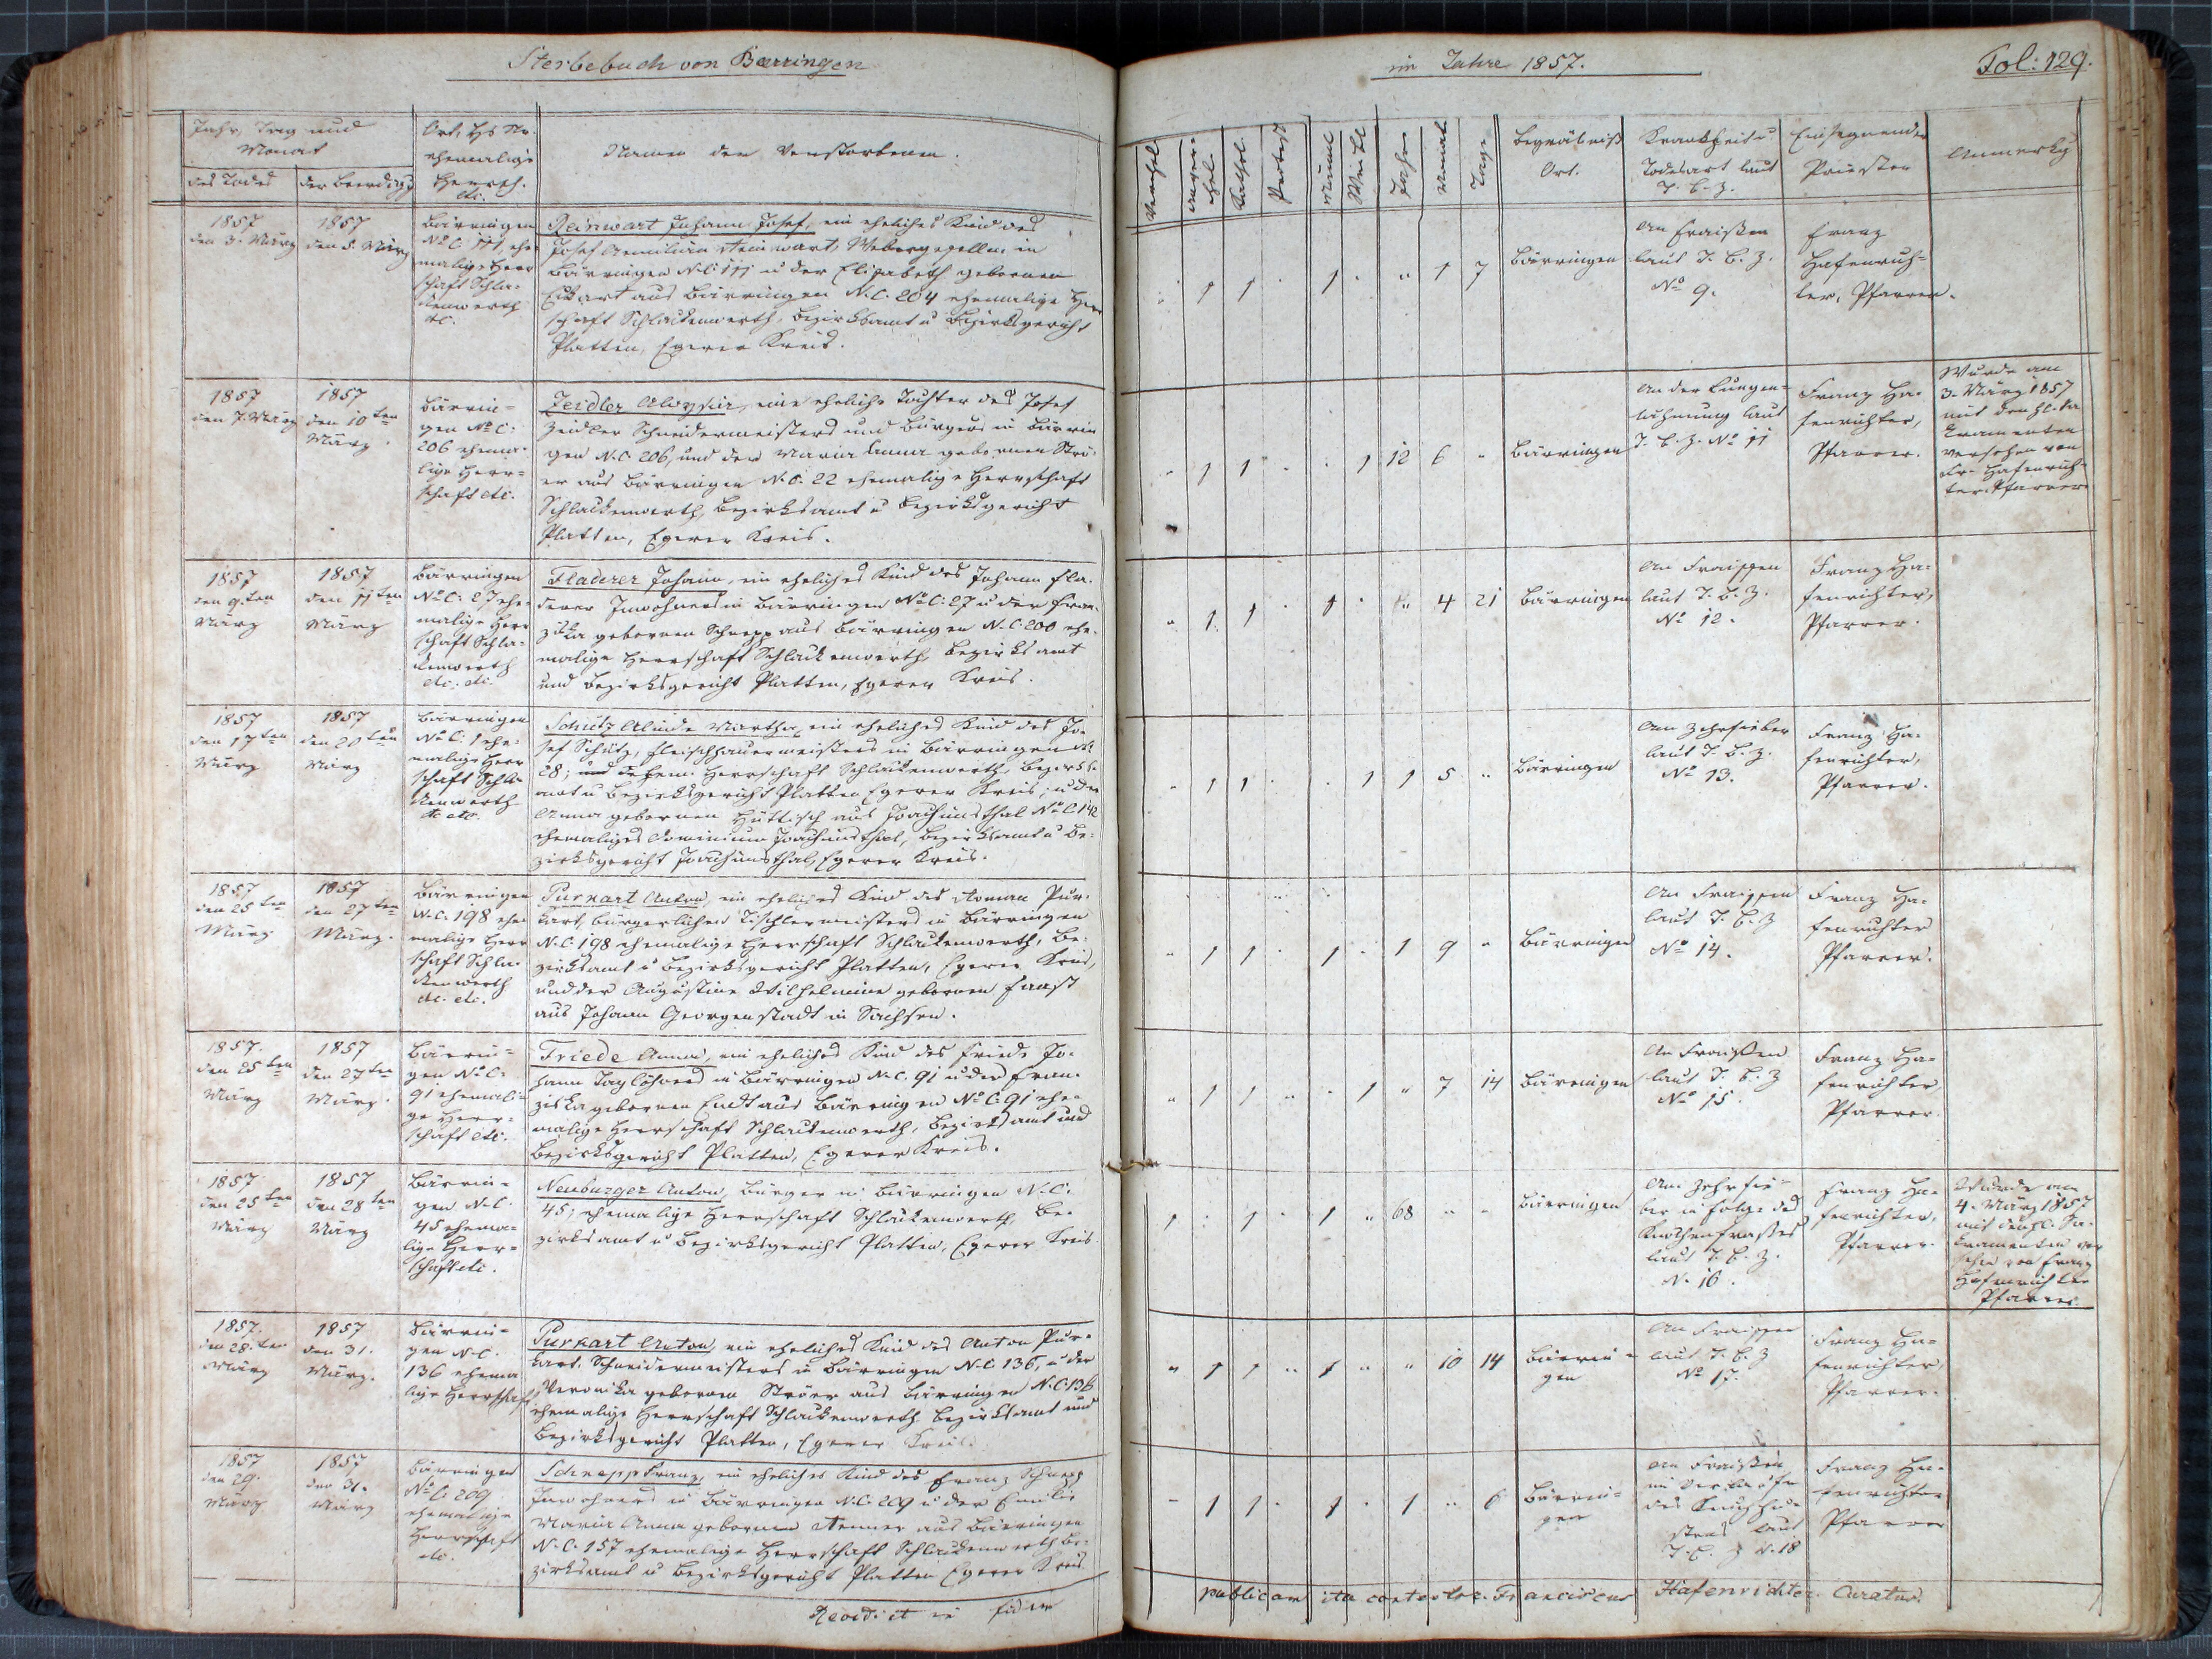 Sterbebuch von Barringen
im Jahre 1857.
Fol: 129.
Jahr, Tag und
Monat
des Todes
der Beerdigg
Ort, Hs Nr.
ehemalige
Herrsch.
etc.
Namen der Verstorbenen.
Kathol.
Männl
Weibl
Jahre
Monat
Tage
Begräbniß
Ort.
Krankheit u
Todesart laut
T. B. Z.
Einsegnender
Priester
Anmerkg
1857
den 3. März
1857
den 5. März
Bärringen
No C. 111 ehe
malige Herr
schaft Schla-
ckenwerth
etc.
Reinwart Johann Josef, ein eheliches Kind des
Josef Reinwart, Webergesellen in
Bärringen N.C. 111 u der Elisabeth gebornen
Eckart aus Bärringen N.C. 204 ehemalige Herr
schaft Schlackenwerth, Bezirksamt u Bezirksgericht
Platten, Egerer Kreis.
1 1 1 1 7
Bärringen
An Fraißen
laut T. B. Z.
No 9.
Franz
Hafenrich-
ter, Pfarrer.
1857
den 7. März
1857
den 10ten
März.
Bärrin-
gen No C:
206 ehema-
lige Herr-
schaft etc.
Zeidler Aloysia, eine eheliche Tochter des Josef
Zeidler Schneidermeisters und Bürgers in Bärrin
gen N.C. 206, und der Maria Anna gebornen Strö-
er aus Bärringen N.C. 22 ehemalige Herrschaft
Schlackenwerth, Bezirksamt u Bezirksgericht
Platten, Egerer Kreis.
1 1 1 12 6
Bärringen
An der Lungen-
lähmung laut
T. B. Z. No 11
Franz Ha-
fenrichter,
Pfarrer.
Wurde am
3. März 1857
mit den hl. Sa
kramenten
versehen von
Fr. Hafenrich-
ter Pfarrer
1857
den 9.ten
März
1857
den 11ten
März
Bärringen
No C: 27 ehe-
malige Herr
schaft Schla-
ckenwerth
etc. etc.
Fladerer Johann, ein eheliches Kind des Johann Fla-
derer Inwohners in Bärringen No C: 27 u der Fran-
ziska gebornen Schnepp aus Bärringen N.C. 200 ehe-
malige Herrschaft Schlackenwerth, Bezirksamt
und Bezirksgericht Platten, Egerer Kreis.
1 1 1 4 21
Bärringen
An Fraissen
laut T. B. Z.
No 12.
Franz Ha-
fenrichter,
Pfarrer.
1857
den 17ten
März
1857
den 20ten
März
Bärringen
No C: 1 ehe-
malige Herr
schaft Schla-
ckenwerth
etc etc.
Schütz Martha, ein eheliches Kind des Jo-
sef Schütz, Fleischhauermeisters in Bärringen N.
28; Herrschaft Schlackenwerth, Bezirks-
amt u Bezirksgericht Platten Egerer Kreis; u der
Anna gebornen Hüttisch aus Joachimsthal No C 142
ehemaliges Dominium Joachimsthal, Bezirksamt u Be-
zirksgericht Joachimsthal, Egerer Kreis.
1 1 1 1 5
Bärringen
Am Zehrfieber
laut T. B. Z.
No 13.
Franz Ha-
fenrichter,
Pfarrer.
1857
den 25ten
März
1857
den 27ten
März.
Bärringen
N.C. 198 ehe-
malige Herr
schaft Schla-
ckenwerth
etc. etc.
Purkart Anton, ein eheliches Kind des Roman Pur-
kart, bürgerlichen Tischlermeisters in Bärringen
N.C. 198 ehemalige Herrschaft Schlackenwerth, Be-
zirksamt u Bezirksgericht Platten, Egerer Kreis,
und der Augustine Wilhelmine gebornen Faast
aus Johann Georgenstadt in Sachsen.
1 1 1 1 9
Bärringen
An Fraissen
laut T. B. Z
No 14.
Franz Ha-
fenrichter
Pfarrer.
1857.
den 25ten
März
1857
den 27ten
März.
Bärrin-
gen No C:
91 ehemali-
ge Herr-
schaft etc.
Friede Anna, ein eheliches Kind des Friede Jo-
hann Taglöhners in Bärringen N.C. 91 u der Fran-
ziska gebornen Endt aus Bärringen No C: 91 ehe-
malige Herrschaft Schlackenwerth, Bezirksamt und
Bezirksgericht Platten, Egerer Kreis.
1 1 1 7 14
Bärringen
An Fraißen
laut T. B. Z
No 15.
Franz Ha-
fenrichter,
Pfarrer.
1857
den 25ten
März
1857
den 28ten
März
Bärrin-
gen N.C.
45 ehema-
lige Herr-
schaft etc.
Neuburger Anton, Bürger in Bärringen N.C.
45; ehemalige Herrschaft Schlackenwerth, Be-
zirksamt u Bezirksgericht Platten, Egerer Kreis.
1 1 1 68
Bärringen
Am Zehrfie-
ber in Folge des
Knochenfraßes
laut T. B. Z.
N. 16.
Franz Ha-
fenrichter,
Pfarrer.
Wurde am
4. März 1857
mit den hl. Sa-
kramenten ver
sehen von Franz
Hafenrichter
Pfarrer.
1857.
den 28.ten
März
1857
den 31.
März.
Bärrin-
gen N.C.
136 ehema
lige Herrschaft
Purkart Anton, ein eheliches Kind des Anton Pur-
kart, Schneidermeisters in Bärringen N.C 136, u der
Veronika gebornen Ströer aus Bärringen N.C. 136
ehemalige Herrschaft Schlackenwerth Bezirksamt und
Bezirksgericht Platten, Egerer Kreis.
1 1 1 10 14
Bärrin-
gen
An Fraissen
laut T. B. Z
No 17.
Franz Ha-
fenrichter,
Pfarrer.
1857
den 29.
März
1857
den 31.
März
Bärringen
No C: 209
ehemalige
Herrschaft
etc.
Schnepp Franz, ein eheliches Kind des Franz Schnepp
Inwohners in Bärringen N.C. 209 u der Emilie
Maria Anna gebornen Renner aus Bärringen
N.C. 157 ehemalige Herrschaft Schlackenwerth Be-
zirksamt u Bezirksgericht Platten Egerer Kreis.
1 1 1 1 6
Bärrin-
gen
An Fraißen
im Verlaufe
des Keuchhu-
stens laut
T. B. Z N. 18
Franz Ha-
fenrichter
Pfarrer
in fidem
publicam ita contestor. Franciscus Hafenrichter Curatus.